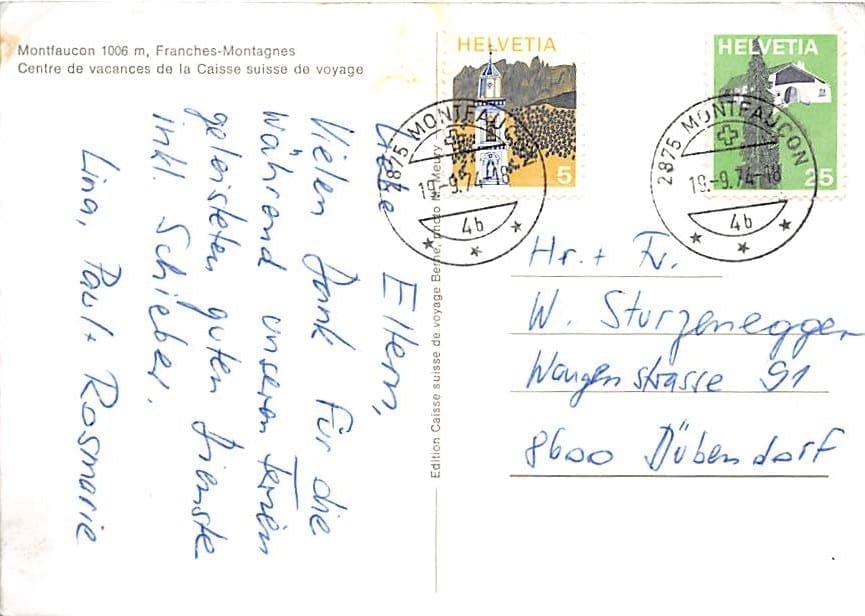 Montfaucon 1006 m, Franches-Montagnes
Centre de vacances de la Caisse suisse de voyage
Liebe Eltern,
Vielen Dank für die
während unseren Ferien
geleisteten guten Dienste
inkl. Schieber.
Lina, Paul + Rosmarie
Edition Caisse suisse de voyage Berne, photo M. Meury
HELVETIA
5
HELVETIA
25
2875 MONTFAUCON
19.-9.74-18
4b
2875 MONTFAUCON
19.-9.74-18
4b
Hr. + Fr.
W. Sturzenegger
Wangenstrasse 91
8600 Dübendorf